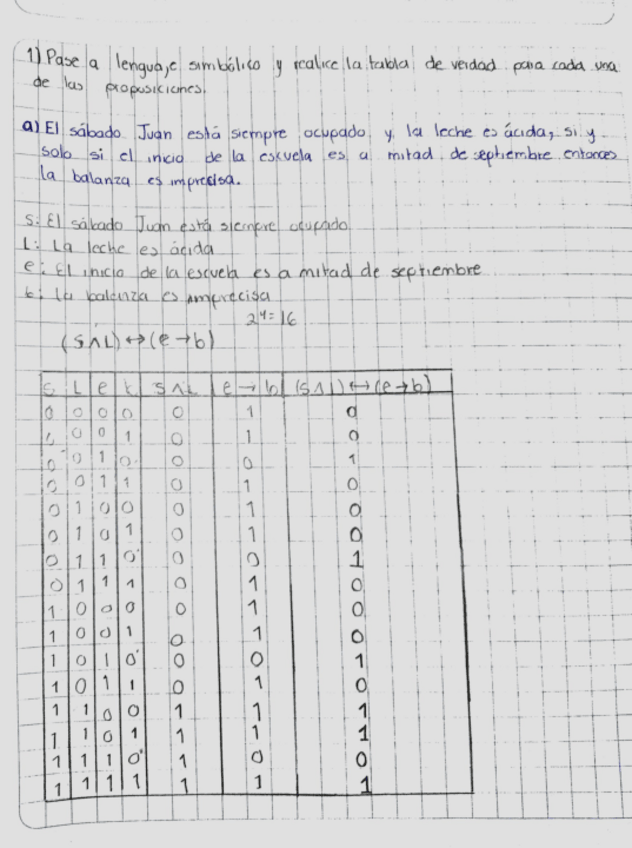 1) Pase a lenguaje simbólico y realice la tabla de verdad para cada una
de las proposiciones.
a) El sábado Juan está siempre ocupado y la leche es ácida, si y
solo si el inicio de la escuela es a mitad de septiembre entonces
la balanza es imprecisa.
s: El sábado Juan está siempre ocupado
L: La leche es ácida
e: El inicio de la escuela es a mitad de septiembre
b: La balanza es imprecisa
2⁴= 16
(s∧L)↔(e→b)
s L e b s∧L e→b (s∧l)↔(e→b)
0 0 0 0 0 1 0
0 0 0 1 0 1 0
0 0 1 0 0 0 1
0 0 1 1 0 1 0
0 1 0 0 0 1 0
0 1 0 1 0 1 0
0 1 1 0 0 0 1
0 1 1 1 0 1 0
1 0 0 0 0 1 0
1 0 0 1 0 1 0
1 0 1 0 0 0 1
1 0 1 1 0 1 0
1 1 0 0 1 1 1
1 1 0 1 1 1 1
1 1 1 0 1 0 0
1 1 1 1 1 1 1